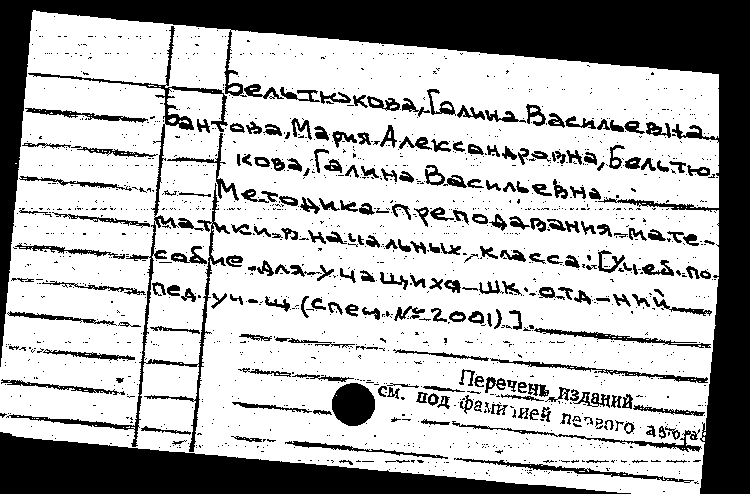 Бельтюкова, Галина Васильевна
Бантова, Мария Александровна, Бельтю
кова, Галина Васильевна.
Методика преподавания мате-
матики в начальных класса: [Учеб. по
собие для учащихся шк. отд-ний
пед. уч-щ (спец. № 2001)].
Перечень изданий
см. под фамилией первого автора